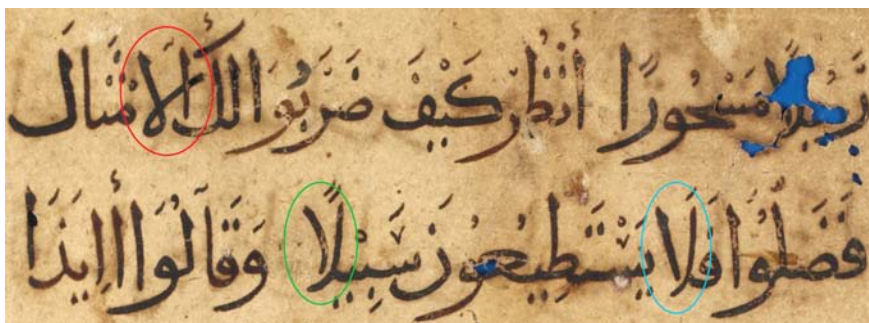 رَجُلًا مَسْحُورًا أنْظُرْ كَيْفَ ضَرَبُوا لَكَ الَامْثَالَ
فَضَلُّوا فَلَا يَسْتَطِيعُونَ سَبِيْلًا وَقَالُوا أَاِيذَا